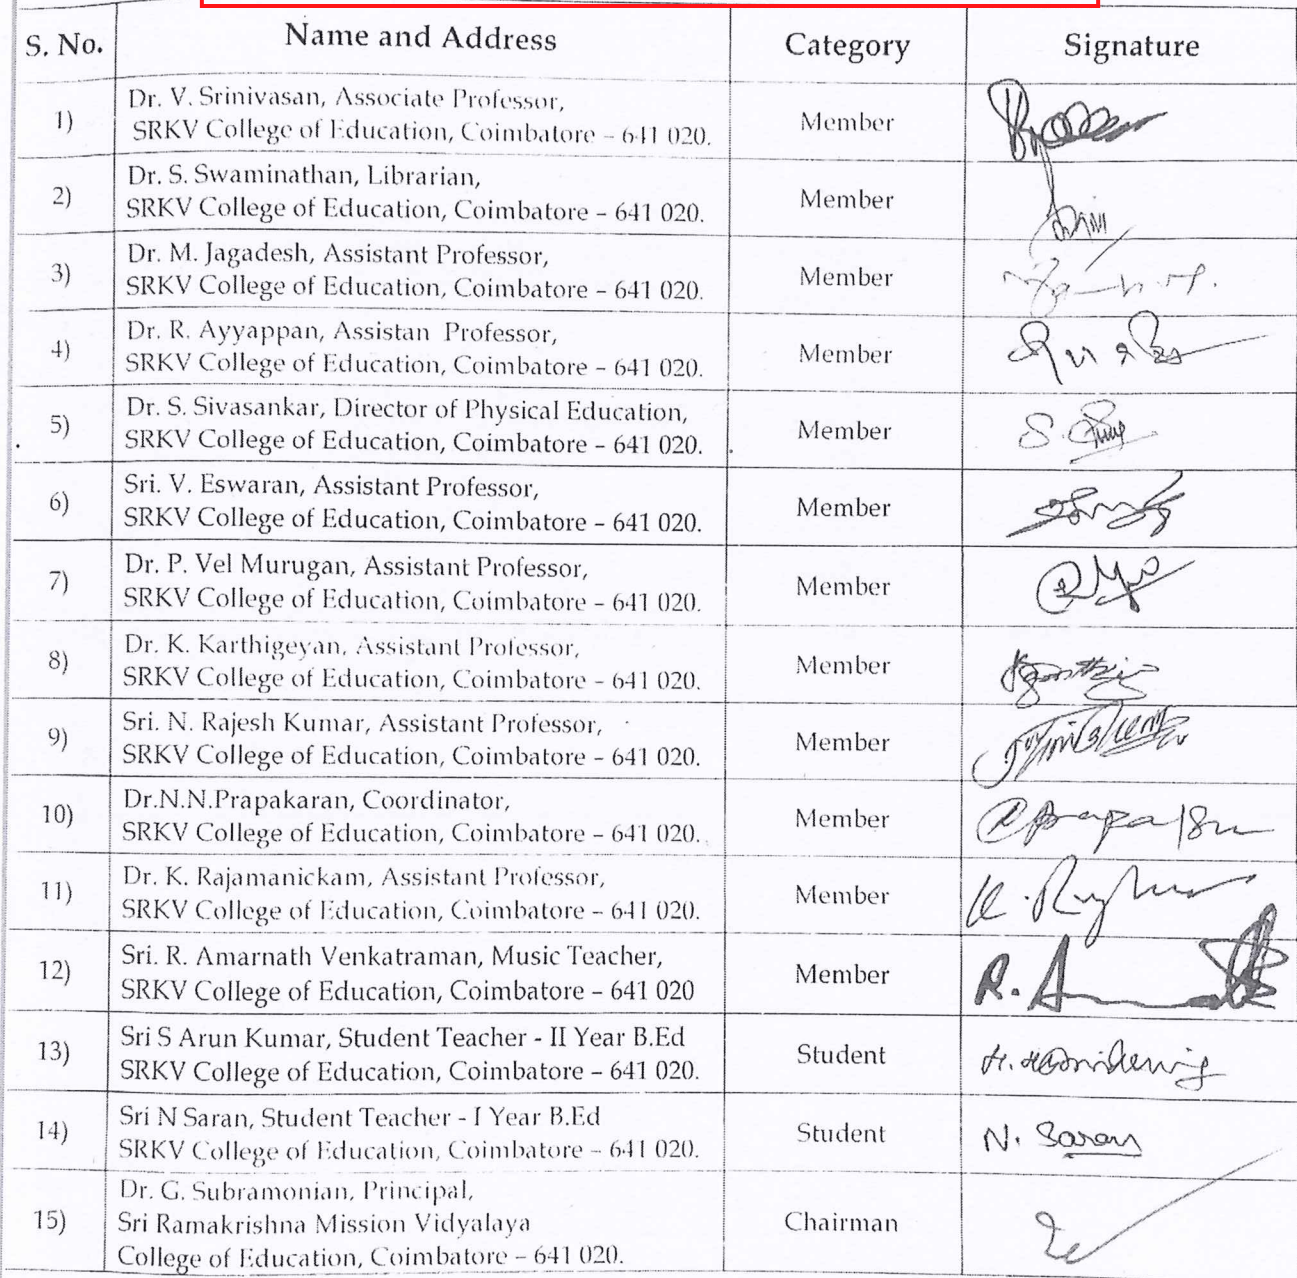 S. No. Name and Address Category Signature
1) Dr. V. Srinivasan, Associate Professor, Member
SRKV College of Education, Coimbatore – 641 020.
2) Dr. S. Swaminathan, Librarian, Member
SRKV College of Education, Coimbatore – 641 020.
3) Dr. M. Jagadesh, Assistant Professor, Member
SRKV College of Education, Coimbatore – 641 020.
4) Dr. R. Ayyappan, Assistan Professor, Member
SRKV College of Education, Coimbatore – 641 020.
5) Dr. S. Sivasankar, Director of Physical Education, Member
SRKV College of Education, Coimbatore – 641 020.
6) Sri. V. Eswaran, Assistant Professor, Member
SRKV College of Education, Coimbatore – 641 020.
7) Dr. P. Vel Murugan, Assistant Professor, Member
SRKV College of Education, Coimbatore – 641 020.
8) Dr. K. Karthigeyan, Assistant Professor, Member
SRKV College of Education, Coimbatore – 641 020.
9) Sri. N. Rajesh Kumar, Assistant Professor, Member
SRKV College of Education, Coimbatore – 641 020.
10) Dr.N.N.Prapakaran, Coordinator, Member
SRKV College of Education, Coimbatore – 641 020.
11) Dr. K. Rajamanickam, Assistant Professor, Member
SRKV College of Education, Coimbatore – 641 020.
12) Sri. R. Amarnath Venkatraman, Music Teacher, Member
SRKV College of Education, Coimbatore – 641 020
13) Sri S Arun Kumar, Student Teacher - II Year B.Ed Student
SRKV College of Education, Coimbatore – 641 020.
14) Sri N Saran, Student Teacher - I Year B.Ed Student N. Saran
SRKV College of Education, Coimbatore – 641 020.
15) Dr. G. Subramonian, Principal, Chairman
Sri Ramakrishna Mission Vidyalaya
College of Education, Coimbatore – 641 020.